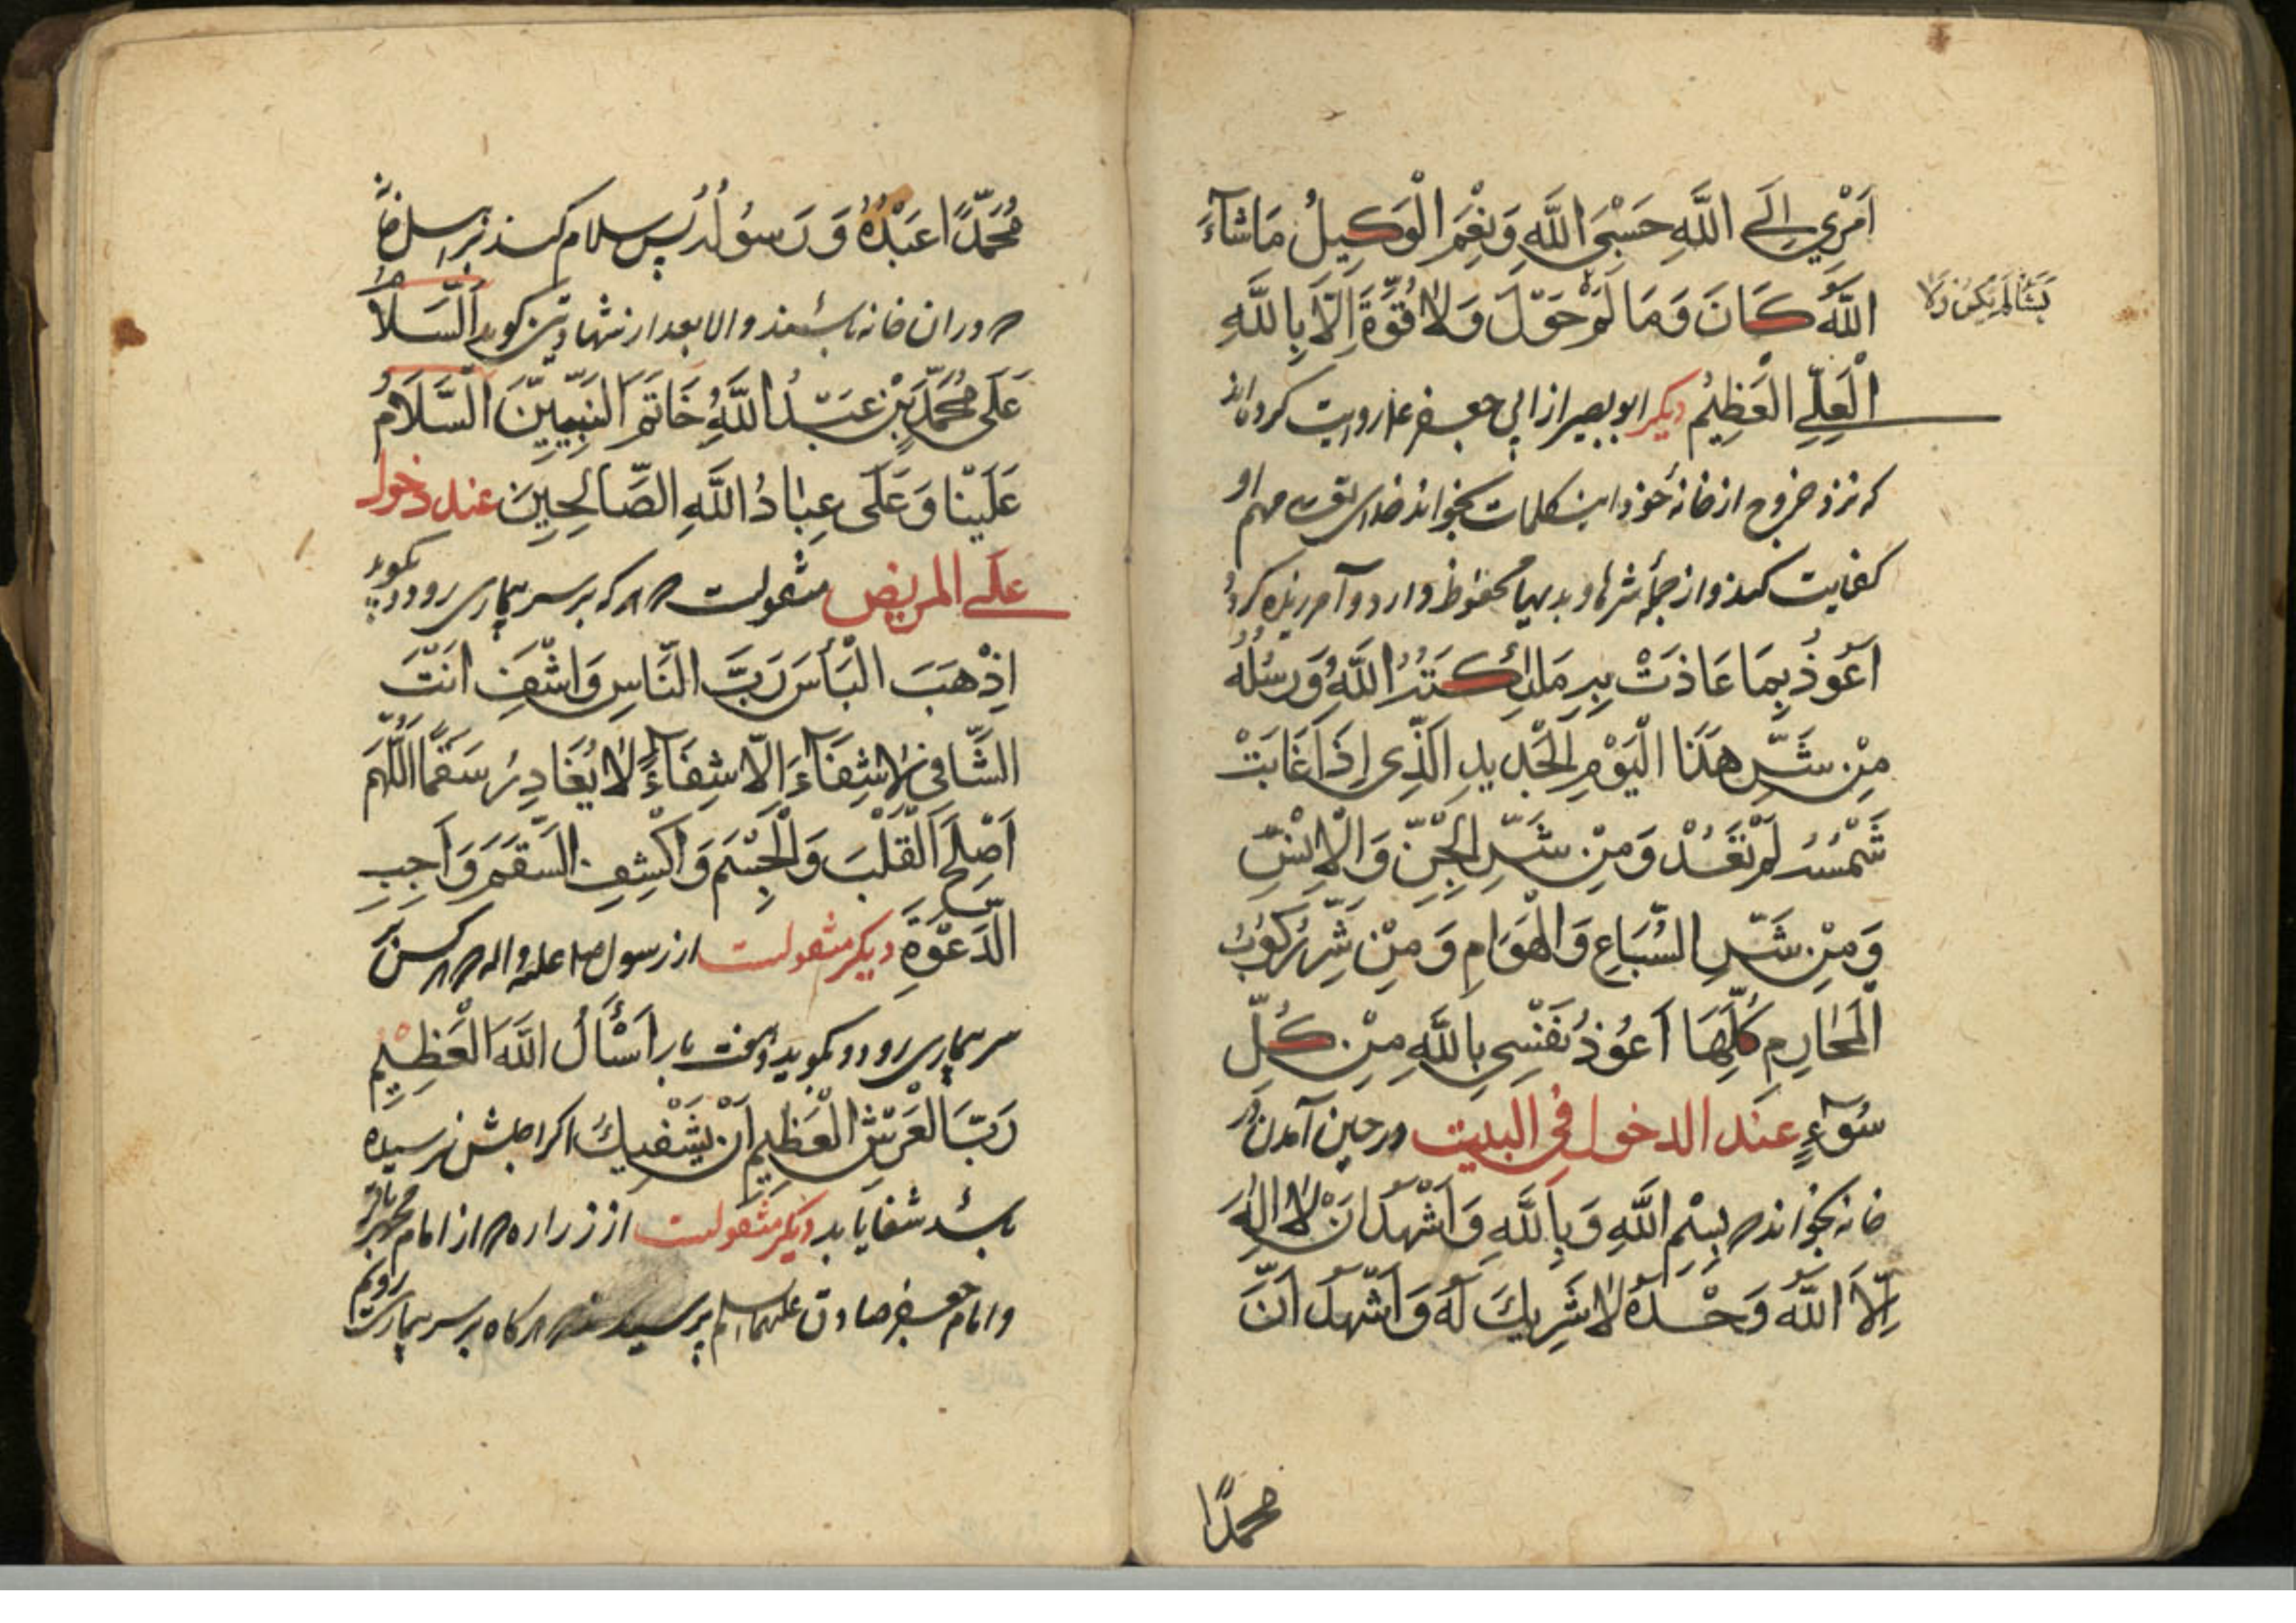 اَمْرِي اِلَى اللَّهِ حَسْبِيَ اللَّهُ وَنِعْمَ الْوَكِيلُ مَاشَآءَ
اللَّهُ كَانَ وَمَا لَمْ حَوْلَ وَلَا قُوَّةَ اِلَّا بِاللَّهِ
يَشَأْ لَمْ يَكُنْ وَلَا
الْعَلِيِّ الْعَظِيمِ ديكر ابو بصير از ابى جعفر ع روايت كرده اند
كه نزد خروج از خانهٔ خود اين كلمات بخواند خداى تع مهم او
كفايت كند و از جملهٔ شرها و بديها محفوظ دارد و آمرزيده كردد
اَعُوذُ بِمَا عَاذَتْ بِهِ مَلٰئِكَتُ اللَّهِ وَرُسُلُهُ
مِنْ شَرِّ هَذَا الْيَوْمِ الْجَدِيدِ الَّذِى اِذَا غَابَتْ
شَمْسُهُ لَمْ تَعُدْ وَمِنْ شَرِّ الْجِنِّ وَالْاِنْسِ
وَمِنْ شَرِّ السِّبَاعِ وَالْهَوَامِ وَمِنْ شَرِّ رُكُوبِ
الْمَحَارِمِ كُلِّهَا اَعُوذُ نَفْسِى بِاللَّهِ مِنْ كُلِّ
سُوٓءٍ عند الدخول فى البيت در حين آمدن در
خانه بخواند بِسْمِ اللَّهِ وَبِاللَّهِ وَاَشْهَدُ اَنْ لَا اِلٰهَ
اِلَّا اللَّهُ وَحْدَهُ لَا شَرِيكَ لَهُ وَاَشْهَدُ اَنَّ
محمدًا
مُحَمَّدًا عَبْدُهُ وَرَسُولُهُ پس سلام كند بر اهل خانه
در ان خانه باشند والا بعد از شهادتين كويد اَلسَّلَامُ
عَلَى مُحَمَّدِ بْنِ عَبْدُ اللَّهِ خَاتَمِ النَّبِيِّينَ السَّلَامُ
عَلَيْنَا وَعَلَى عِبَادُ اللَّهِ الصَّالِحِينَ عند دخول
على المريض منقولست هر كه بر سر بيمارى رود بكويد
اِذْهَبَ الْبَأْسَ رَبَّ النَّاسِ وَاشْفِ اَنْتَ
الشَّافِى لَا شِفَآءَ اِلَّا شِفَآءً لَا يُغَادِرُ سَقَمًا اللَّهُمَّ
اَصْلِحِ الْقَلْبَ وَالْجِسْمَ وَاكْشِفِ السَّقَمَ وَاَجِبِ
الدَّعْوَةِ ديكر منقولست از رسول ص عليه و اله هر كس بر
سر بيمارى رود و بكويد هفت بار اَسْأَلُ اللَّهَ الْعَظِيمِ
رَبَّ الْعَرْشِ الْعَظِيمِ اَنْ يَشْفِيكَ اكر اجلش نرسيده
باشد شفا يابد ديكر منقولست از زراره از امام محمد باقر
و امام جعفر صادق عليهما السلم پرسيد هر كاه بر سر بيمار رويم